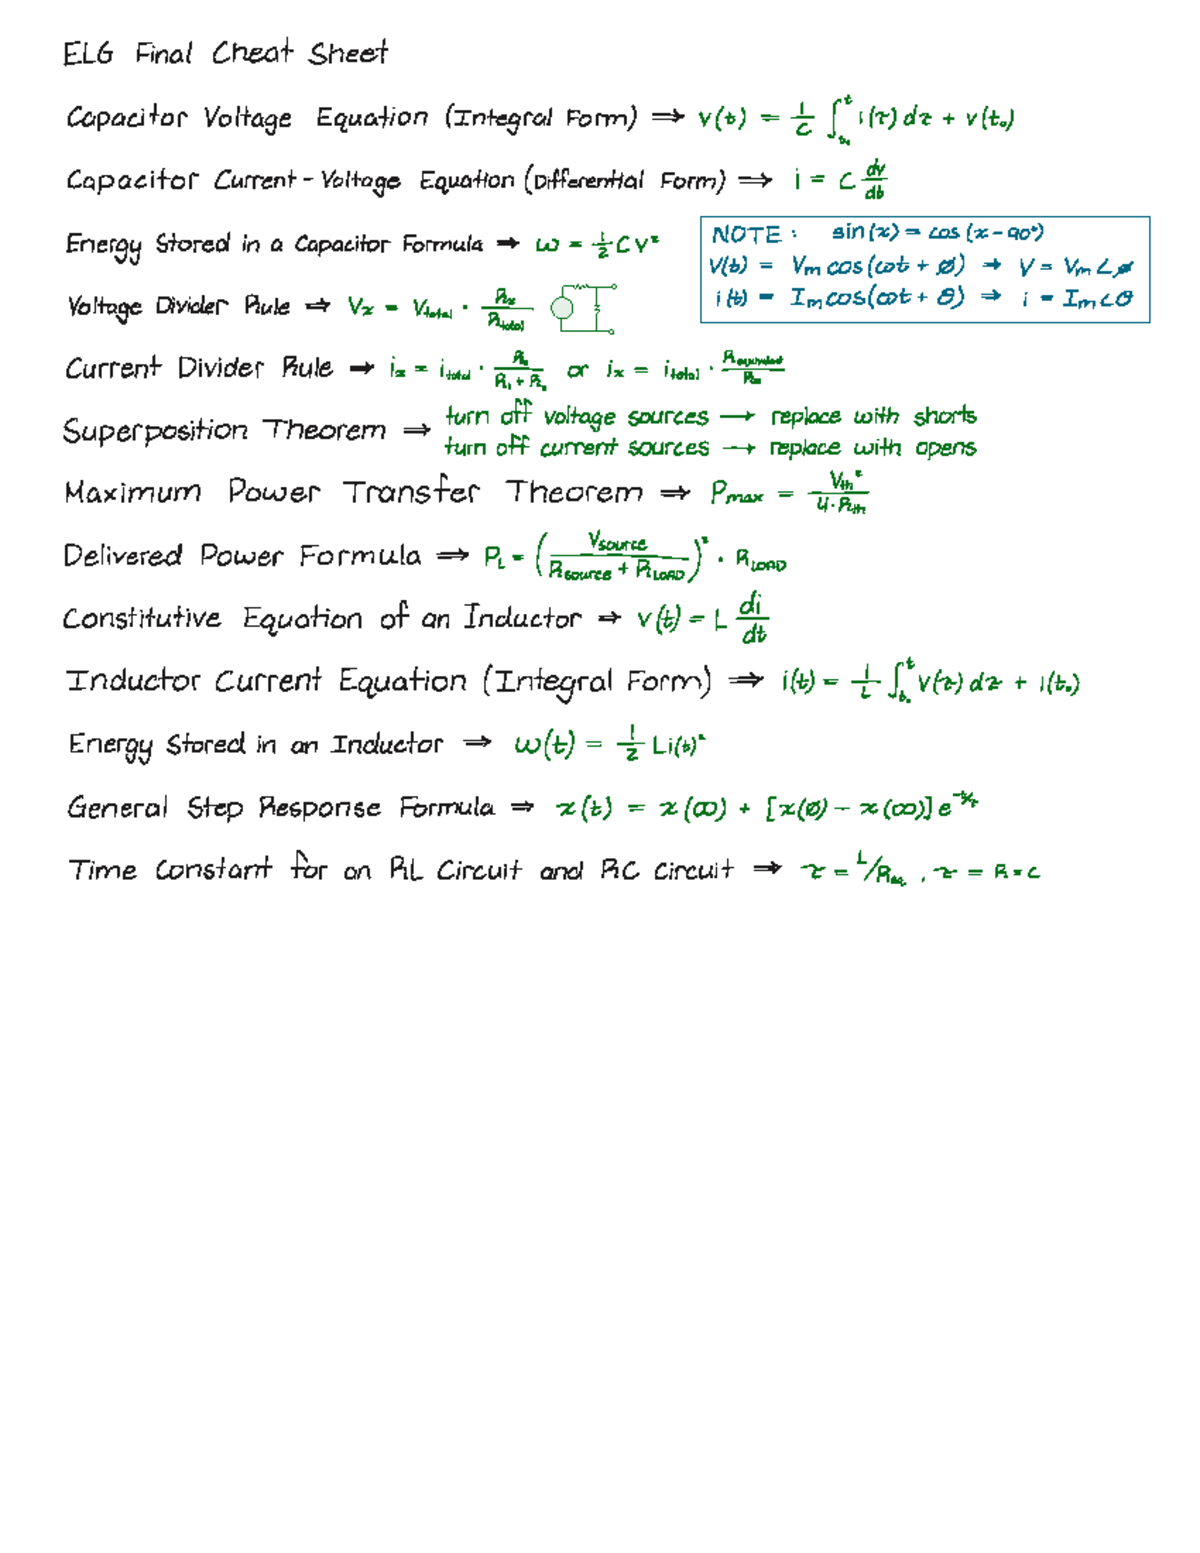 ELG Final Cheat Sheet
Capacitor Voltage Equation (Integral Form) ⇒ v(t) = 1/C ∫_{t₀}^{t} i(τ) dτ + v(t₀)
Capacitor Current-Voltage Equation (Differential Form) ⇒ i = C dv/dt
Energy Stored in a Capacitor Formula → w = 1/2 C V²
NOTE: sin(x) = cos(x-90°)
V(t) = Vm cos(ωt + ø) → V = Vm∠ø
i(t) = Im cos(ωt + θ) ⇒ i = Im∠θ
Voltage Divider Rule ⇒ Vx = Vtotal · Rx/Rtotal
Current Divider Rule → ix = itotal · R₂/(R₁ + R₂) or ix = itotal · Requivalent/Rx
Superposition Theorem ⇒ turn off voltage sources → replace with shorts
turn off current sources → replace with opens
Maximum Power Transfer Theorem ⇒ Pmax = Vth²/(4·Rth)
Delivered Power Formula ⇒ PL = (Vsource/(Rsource + RLOAD))² · RLOAD
Constitutive Equation of an Inductor ⇒ v(t) = L di/dt
Inductor Current Equation (Integral Form) ⇒ i(t) = 1/L ∫_{t₀}^{t} v(τ) dτ + i(t₀)
Energy Stored in an Inductor ⇒ w(t) = 1/2 Li(t)²
General Step Response Formula ⇒ x(t) = x(∞) + [x(0) - x(∞)] e^{-t/τ}
Time Constant for an RL Circuit and RC Circuit ⇒ τ = L/Req, τ = R·C